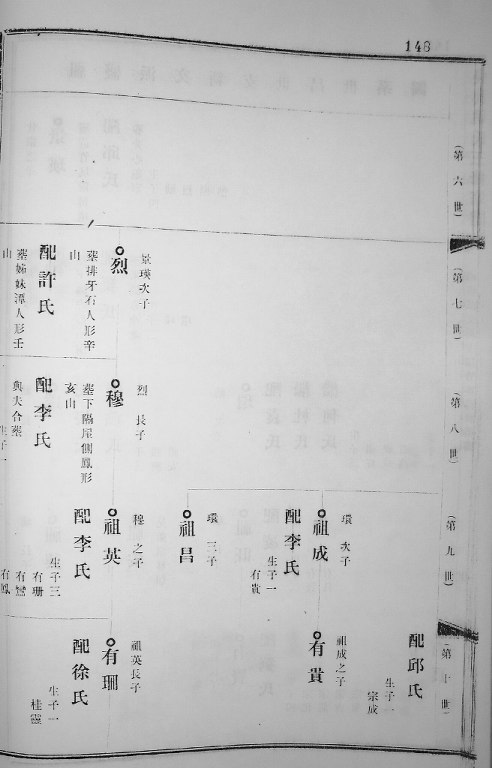 148
(第六世)
(第七世)
景瑛次子
烈
葬排牙石人形辛
山
配許氏
葬姊妹潭人形壬
山
(第八世)
烈長子
穆
葬下隔屋側鳳形
亥山
配李氏
與夫合葬
生子一
(第九世)
環次子
祖成
配李氏
生子一
有貴
環三子
祖昌
穆之子
祖英
配李氏
生子三
有珊
有鸞
有鳳
(第十世)
配邱氏
生子一
宗成
祖成之子
有貴
祖英長子
有珊
配徐氏
生子一
桂靈